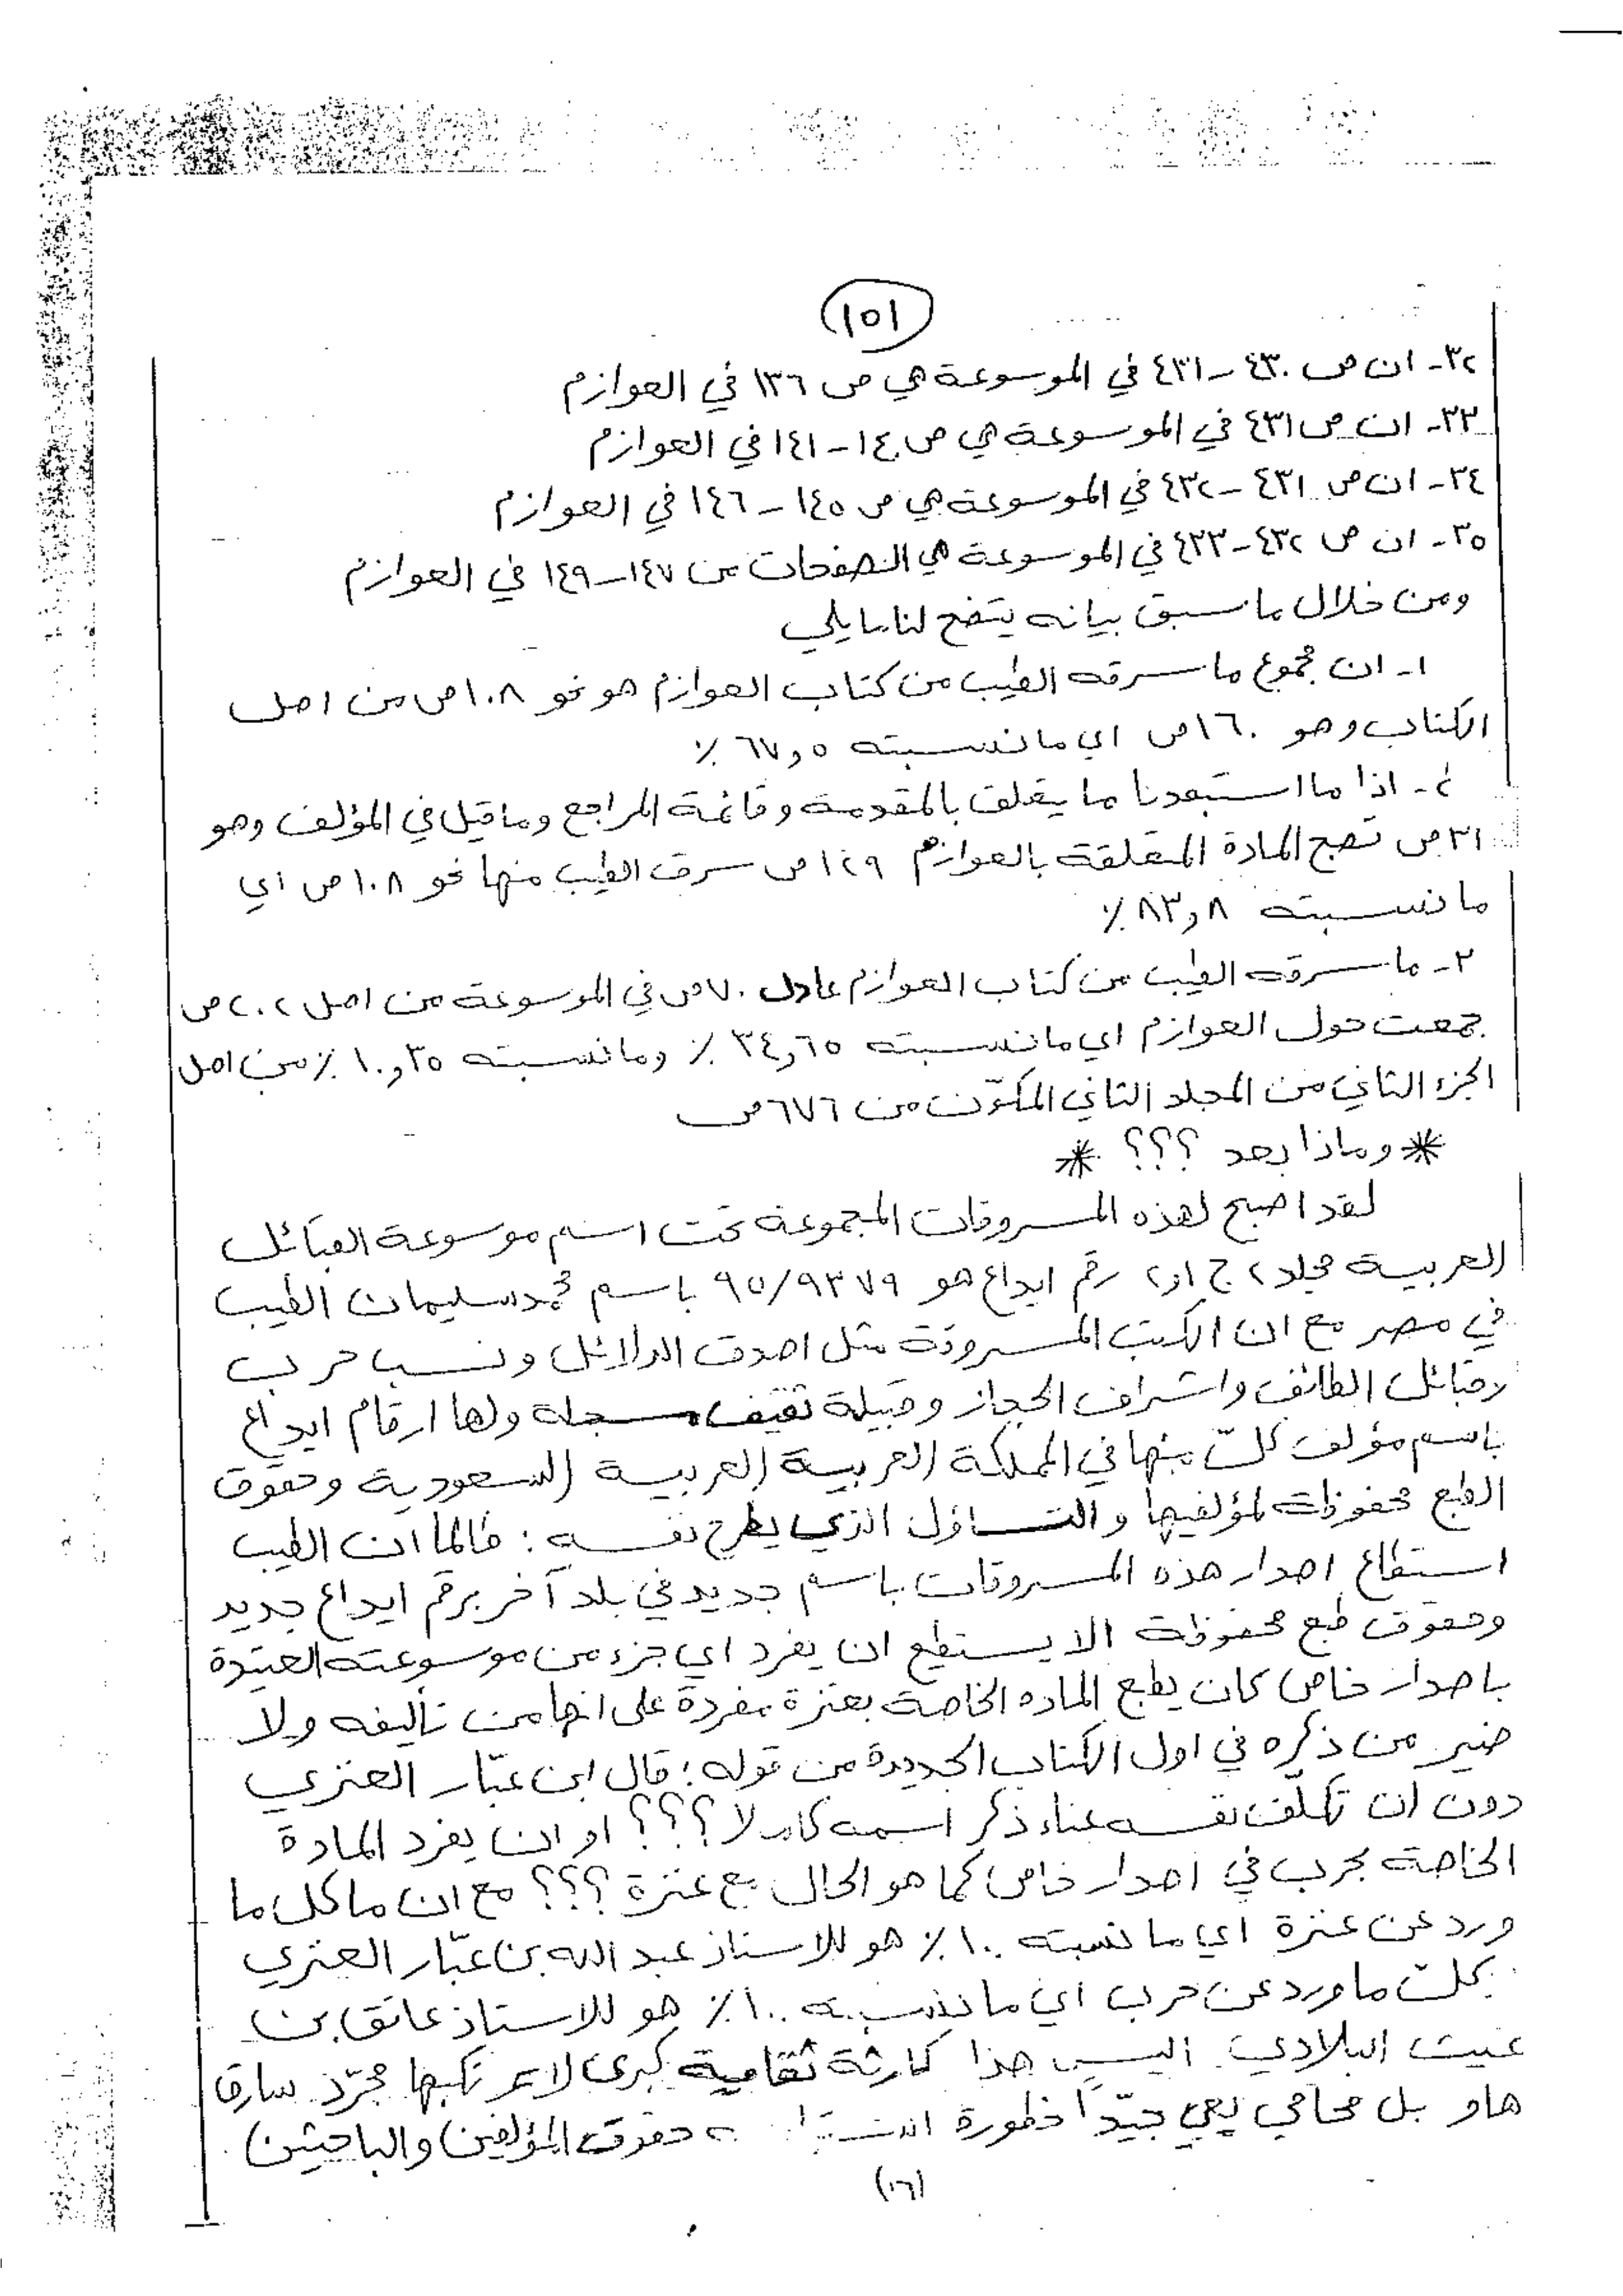 (١٥١)
٣٢- ان ص ٤٣٠-٤٣١ في الموسوعة هي ص ١٣٦ في العوازم
٣٣- ان ص ٤٣١ في الموسوعة هي ص ١٤٠-١٤١ في العوازم
٣٤- ان ص ٤٣١-٤٣٢ في الموسوعة هي ص ١٤٥-١٤٦ في العوازم
٣٥- ان ص ٤٣٢-٤٣٣ في الموسوعة هي الصفحات من ١٤٧-١٤٩ في العوازم
ومن خلال ما سبق بيانه يتضح لنا ما يلي
١- ان مجموع ما سرقه الطيب من كتاب العوازم هو نحو ١٠٨ ص من اصل
الكتاب وهو ١٦٠ ص اي ما نسبته ٦٧,٥ ٪
٢- اذا ما استبعدنا ما يتعلق بالمقدمة وقائمة المراجع وما قيل في المؤلف وهو
٣١ ص تصبح المادة المتعلقة بالعوازم ١٢٩ ص سرق الطيب منها نحو ١٠٨ ص أي
ما نسبته ٨٣,٨ ٪
٣- ما سرقه الطيب من كتاب العوازم عادل ٧٠ ص في الموسوعة من اصل ٢٠٢ ص
جمعت حول العوازم اي ما نسبته ٣٤,٦٥ ٪ وما نسبته ١٠,٣٥ ٪ من اصل
الجزء الثاني من المجلد الثاني المكوّن من ٦٧٦ ص
* وماذا بعد ؟؟؟ *
لقد اصبح لهذه المسروقات المجموعة تحت اسم موسوعة القبائل
العربية مجلد ٢ ج ١و٢ رقم ايداع هو ٩٥/٩٣٧٩ باسم محمد سليمان الطيب
في مصر مع ان الكتب المسروقة مثل اصدق الدلائل ونسب حرب
وقبائل الطائف واشراف الحجاز وقبيلة ثقيف مسجلة ولها ارقام ايداع
باسم مؤلف كلّ منها في المملكة العربية العربية السعودية وحقوق
الطبع محفوظة لمؤلفيها والتساؤل الذي يطرح نفسه : طالما ان الطيب
استطاع اصدار هذه المسروقات باسم جديد في بلد آخر برقم ايداع جديد
وحقوق طبع محفوظة الا يستطيع ان يفرد اي جزء من موسوعته العتيدة
باصدار خاص كان يطبع الماده الخاصة بعنزة مفردة على انها من تأليفه ولا
ضير من ذكره في اول الكتاب الجديدة من قوله : قال ابن عبّار العنزي
دون ان تكلّف نفسه عناء ذكر اسمه كاملا ؟؟؟ او ان يفرد المادة
الخاصة بحرب في اصدار خاص كما هو الحال مع عنزة ؟؟؟ مع ان ما كل ما
ورد عن عنزة أي ما نسبته ١٠٠٪ هو للاستاذ عبد الله بن عبّار العنزي
كلّ ما ورد عن حرب اي ما نسبته ١٠٠٪ هو للاستاذ عاتق بن
غيث البلادي اليس هذا كارثة ثقافية كبرى لا يرتكبها مجرّد سارق
هاو بل محامي يعي جيّداً خطورة حقوق المؤلفين والباحثين)
(١٦)